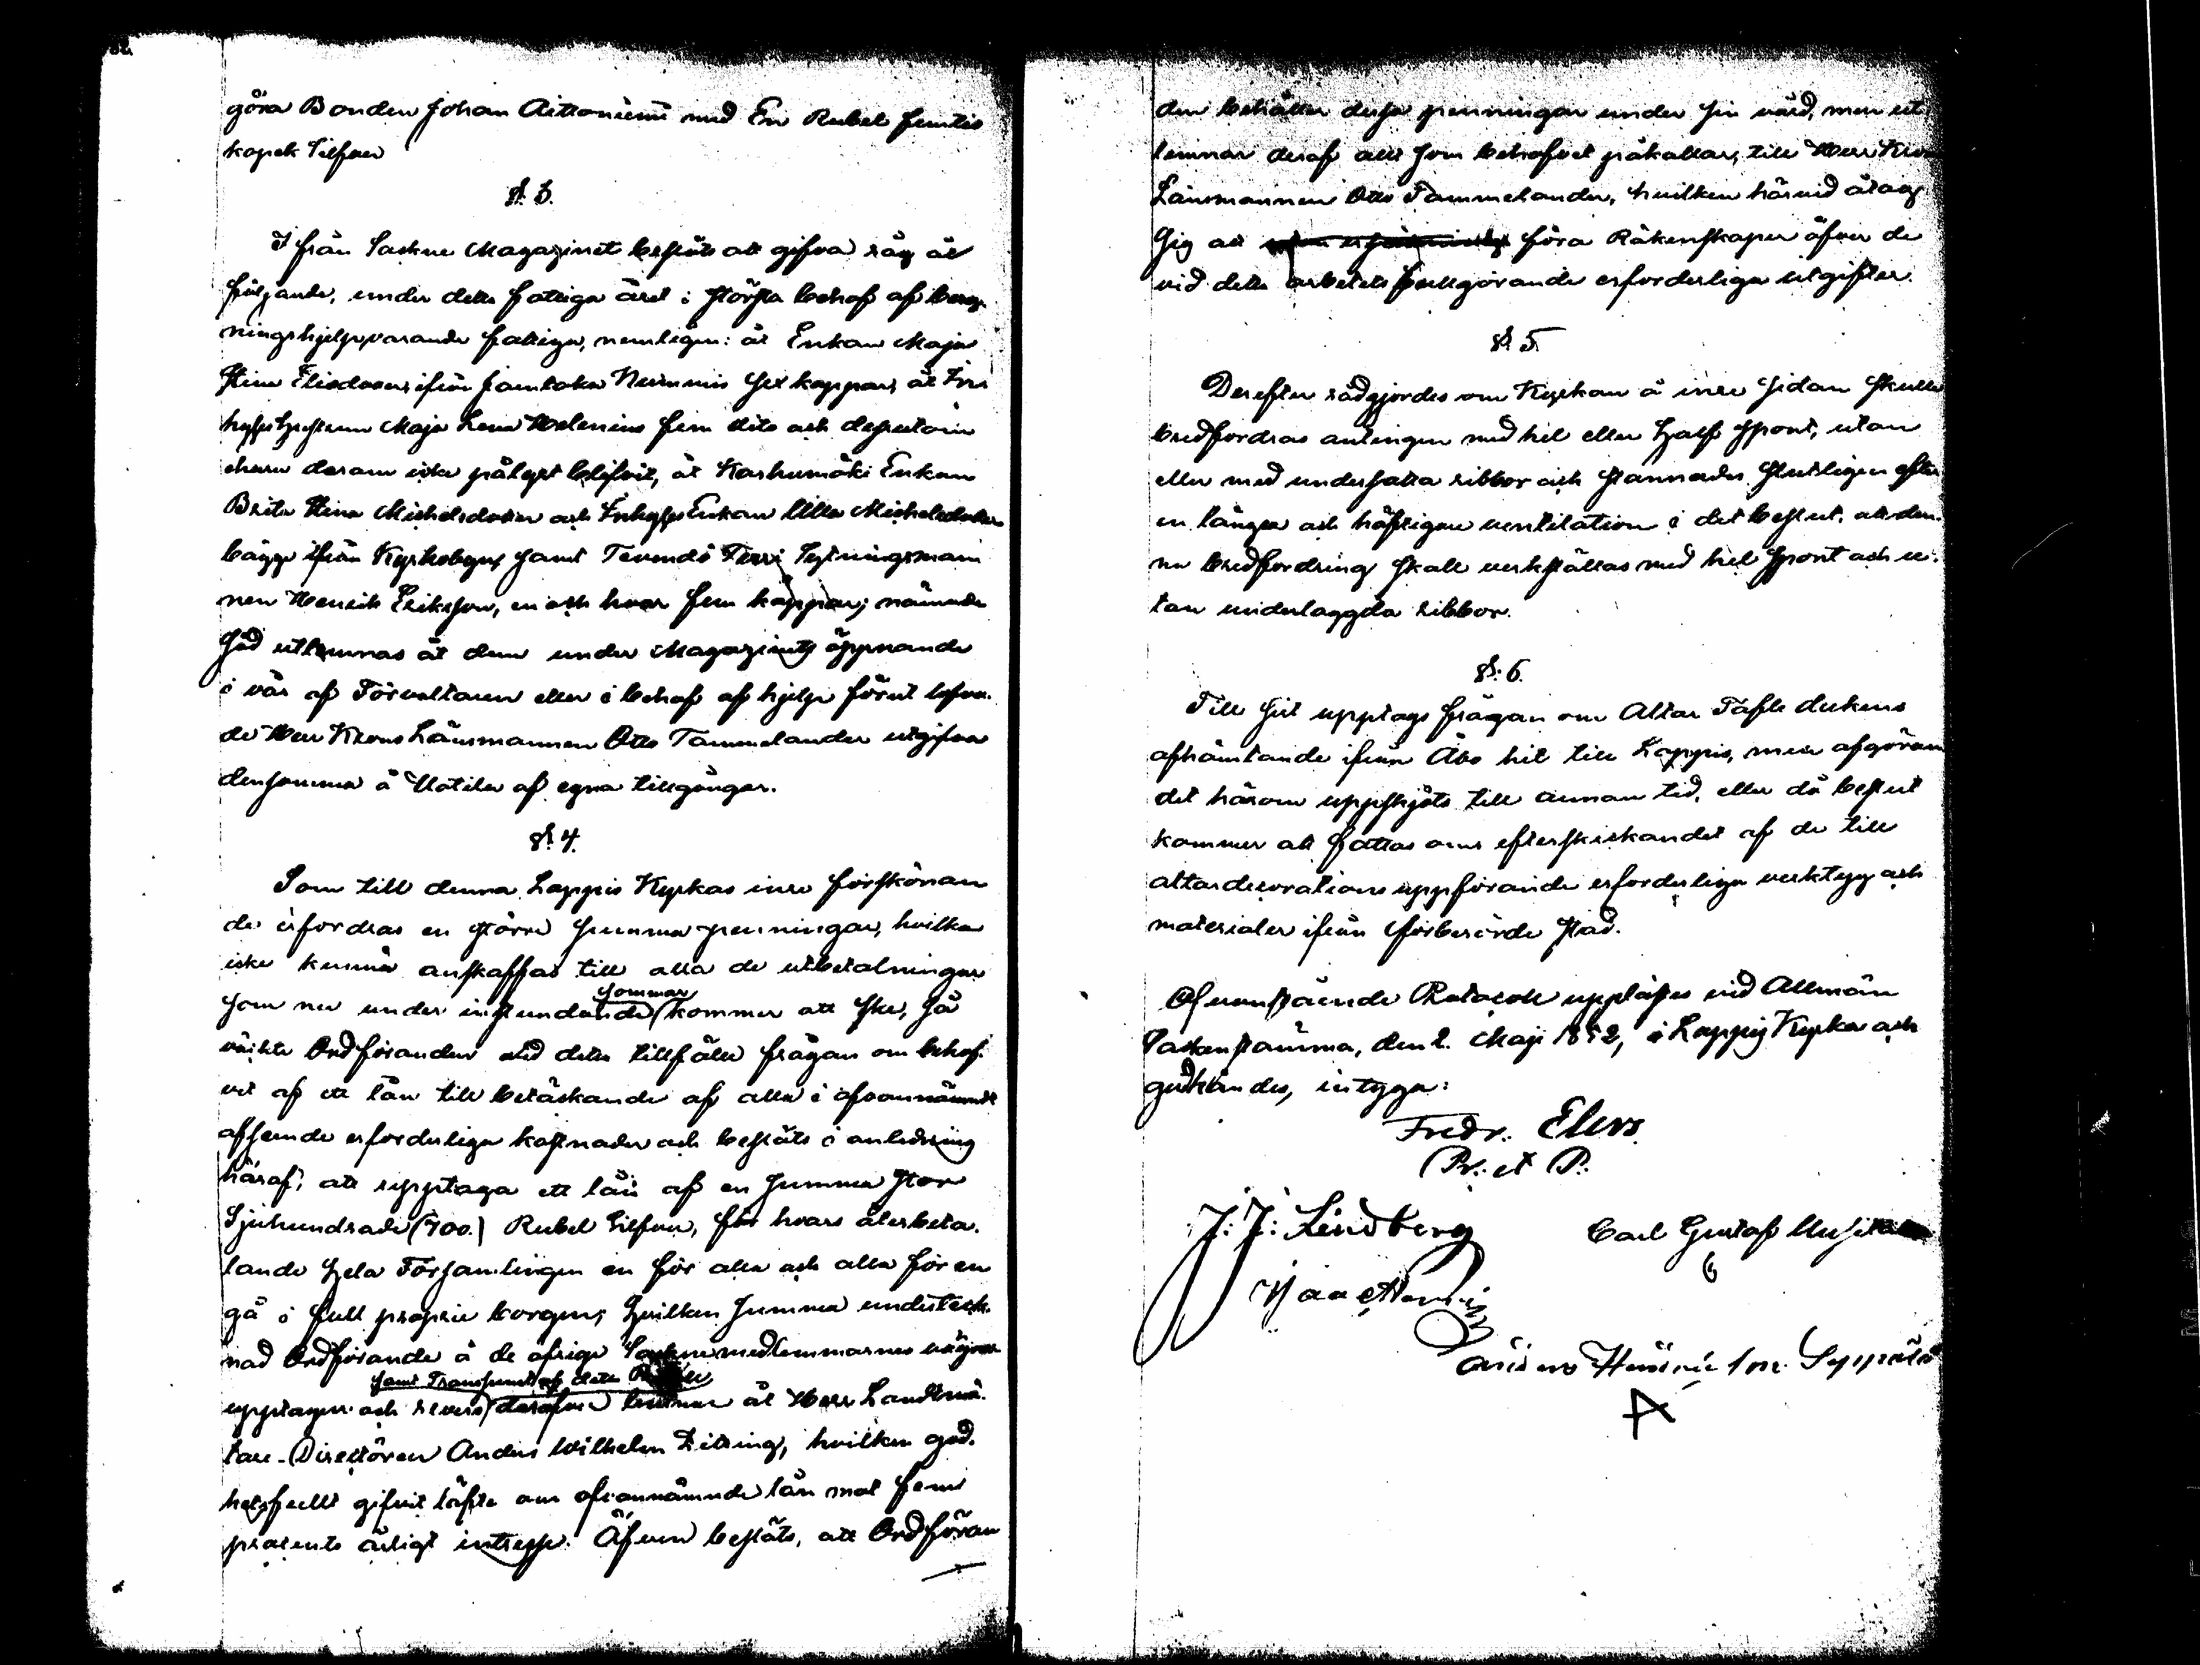 göra Bonden Johan Aittoniemi med En Rubel femtio
kopek Silfver
§. 3.
Ifrån Sockne Magazinet beslöts att gifva råg åt
följande, under detta fattiga året i största behof af berg-
ningshjelp varande fattiga, nemligen: åt Enkan Maja
Stina ifrån sex kappar, åt
Maja Lena Helenius fem dito och
denne derom icke blifvit, åt Karhumäki Enkan
Brita Stina Michelsdotter och Inhyses Enkan Ulla Michelsdotter
bägge ifrån Kyrkobyn, samt Sytningsman
nen Henrik Eriksson, en och hvar fem kappar; nämnde
säd utlemnas åt dem under Magazinets öppnande
i vår af Förvaltaren eller i behof af hjelp förut lofva-
de Herr Krono Länsmannen Otto Tammelander utgifva
densamma å Uotila af egna tillgångar.
§. 4.
Som till denna Lappis Kyrkas inre förskönan
de erfordras en större summa penningar, hvilka
icke kunna anskaffas till alla de utbetalningar
sommar
som nu under instundande kommer att ske, så
väckte Ordföranden vid detta tillfälle frågan om behof-
vet af ett lån till betäckande af alla i ofvannämndt
afseende erforderliga kostnader och beslöts i anledning
häraf, att upptaga ett lån af en summa stor
Sjuhundrade (700.) Rubel Silfver, för hvars återbeta-
lande hela Församlingen en för alla och alla för en
gå i full proprie borgen; hvilken summa underteck-
nad Ordförande å de öfrige Sockne medlemmarnes vägnar
samt Transumt af detta
upptager och revers deröfver lemnar åt Herr Landtmä-
tare-Direktören Anders Wilhelm Zitting, hvilken god-
hetsfullt gifvit löfte om ofvannämnde lån mot fem
procents årligt intresse. Äfven beslöts, att Ordföran
den behåller dessa penningar under sin vård, men ut
lemnar deraf allt som behofvet påkallar, till Herr Krono
Länsmannen Otto Tammelander, hvilken härvid åtog
sig att föra Räkenskaper öfver de
vid detta arbetets fullgörande erforderliga utgifter.
§. 5.
Derefter rådgjordes om Kyrkan å inre sidan skulle
brädfordras antingen med hel eller half spont, utan
eller med undersatta ribbor och stannades slutligen efter
en längre och häftigare ventilation i det beslut, att den-
na brädfordring skall verkställas med hel spont och u-
tan underlaggda ribbor.
§. 6.
Till sist upptogs frågan om Altar Tafle dukens
afhämtande ifrån Åbo hit till Lappis, men afgöran
det härom uppskjöts till annan tid, eller då beslut
kommer att fattas om efterskickandet af de till
altardecorations uppförande erforderliga verktyg och
materialer ifrån förberörde stad.
Ofvanstående Protocoll upplästes vid Allmän
Sockenstämma, den 2. Maji 1852, i Lappis Kyrka och
godkändes, intyga:
Fredr. Elers.
Pr. et P.
J: J: Lindberg
Carl Gustaf
Seppälä
A